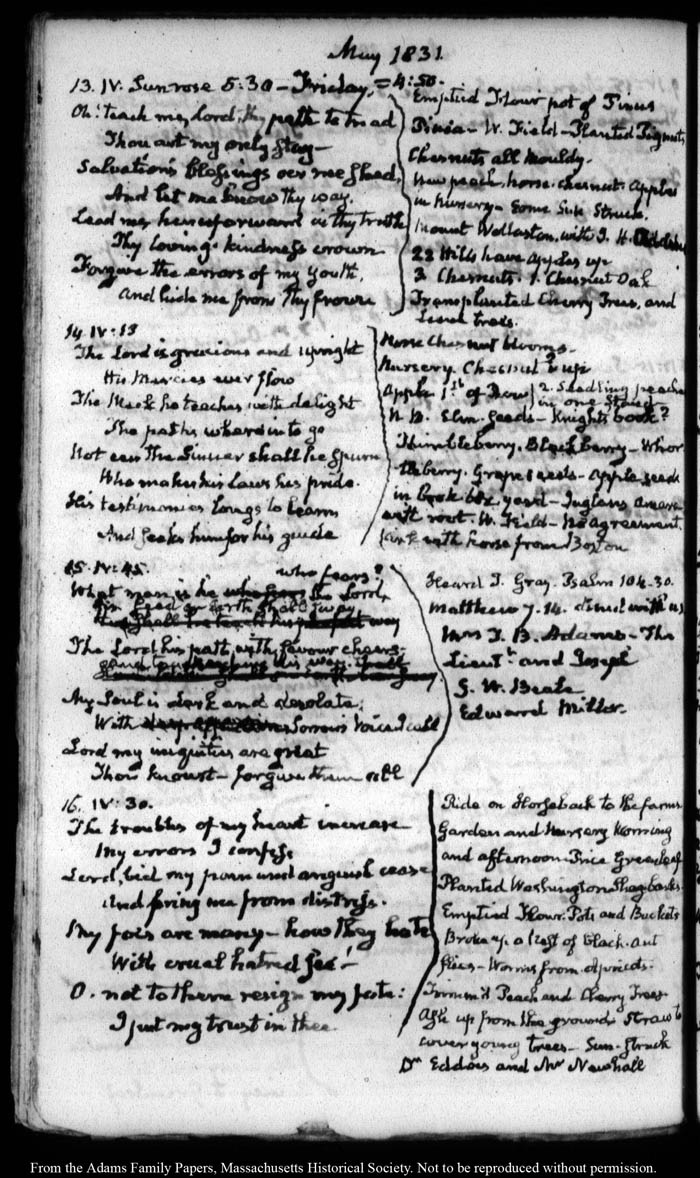 May 1831.
13. IV: Sun rose 5:30 - Friday, = 4:50.
Oh! teach me, Lord, thy path to tread
Thou art my only stay -
Salvation's blessings o'er me shed,
And let me know thy way.
Lead me, henceforward in thy truth
Thy loving-kindness crown
Forgive the errors of my youth,
And hide me from thy frown
Emptied Flower pot of Pinus
Pinia - W. Field - Planted Pignuts
Chesnuts all mouldy.
New peach, horse-chesnut. apples
in Nursery - Some Sun Struck.
Mount Wollaston, with I. H.
22 Hills have apples up
3 Chesnuts. 1. Chesnut Oak
Transplanted Cherry Trees, and
trees.
14. IV:15
The Lord is gracious and upright
His Mercies ever flow
The Meek he teaches with delight
The paths wherein to go
Not even the Sinner shall he spurn
Who makes his Laws his pride.
His testimonies longs to learn
And seeks him for his guide
Horse Chesnut blooms.
Nursery. Chesnut up
Apple 1st of Row 2. Seedling peach
in one
N.B. Elm-Seeds - Knight's book?
Thimbleberry. Blackberry - Whor
tleberry. Grape seeds - Apple seeds
in box yard - Juglans
with root. W. Field - No agreement
with horse from Boston
15. IV:45.
who fears?
What man is he the Lord,
him seed on earth shall sway
way
The Lord his path with favour cheers -
his way
My Soul is dark and desolate;
With Sorrow's voice I call
Lord my iniquities are great
Thou knowst - forgive them all
Heard T. Gray. Psalm 104.30.
Matthew 7.14. dined with us
Mrs T. B. Adams - The
Lieutt and Joseph
G. W. Beale
Edward Miller.
16. IV:30.
The troubles of my heart increase
My errors I confess
Lord, bid my pain and anguish cease
And bring me from distress.
My foes are many - how they hate
With cruel hatred see! -
O. not to them resign my fate:
I put my trust in thee
Ride on Horseback to the farms
Garden and Nursery Morning
and afternoon Price Greenleaf
Planted Washington Shagbarks.
Emptied Flower Pots and Buckets
Broke up a nest of black. ant
flies - Worms from Apricots.
Trimm'd Peach and Cherry Trees
Ash up from the ground. Straw to
cover young trees - Sun-struck
Dn Eddows and Mr Newhall
From the Adams Family Papers, Massachusetts Historical Society. Not to be reproduced without permission.